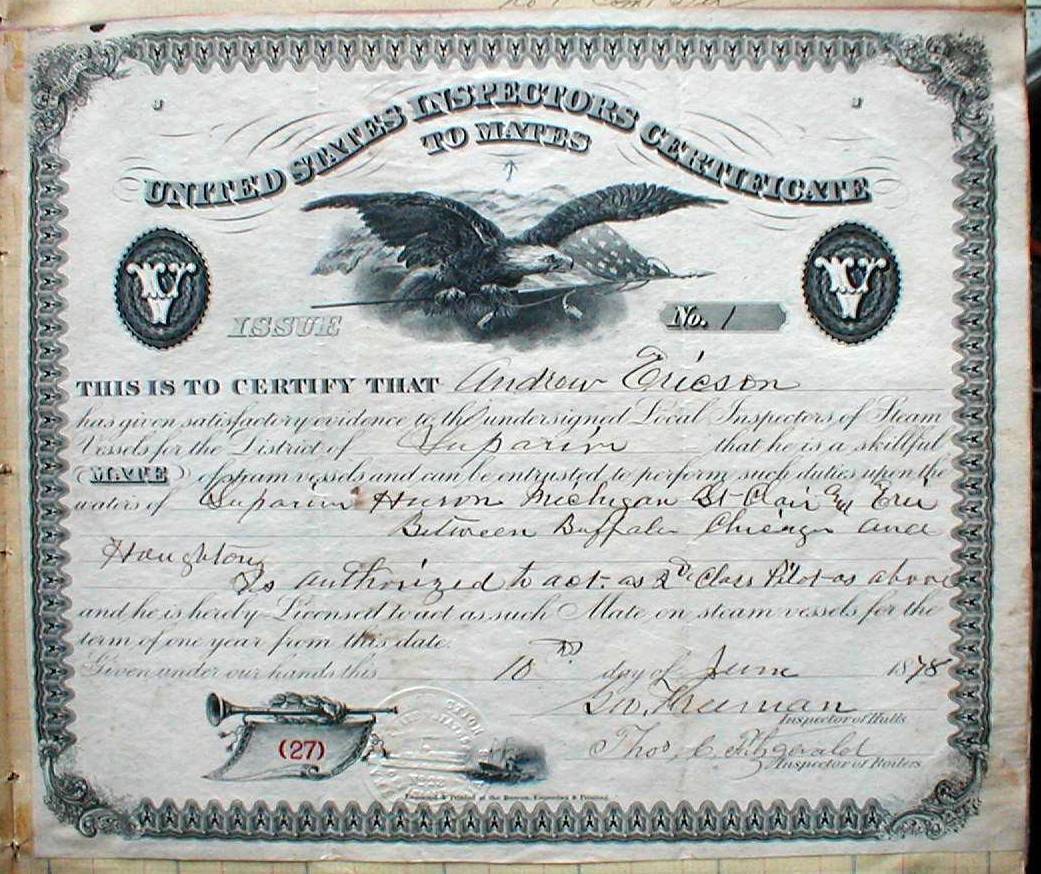 UNITED STATES INSPECTORS CERTIFICATE
TO MATES
ISSUE
No. 1
THIS IS TO CERTIFY THAT Andrew Ericson
has given satisfactory evidence to the undersigned Local Inspectors of Steam
Vessels for the District of Superior that he is a skillful
MATE of steam vessels and can be entrusted to perform such duties upon the
waters of Superior Huron Michigan St Clair and Erie
Between Buffalo Chicago and
Houghton
Is authorized to act as 2d Class Pilot as above
and he is hereby Licensed to act as such Mate on steam vessels for the
term of one year from this date.
Given under our hands this 10 day of June 1878
Freeman
Inspector of Hulls
Thos. C. Fitzgerald
Inspector of Boilers
(27)
Engraved & Printed at the Bureau, Engraving & Printing.